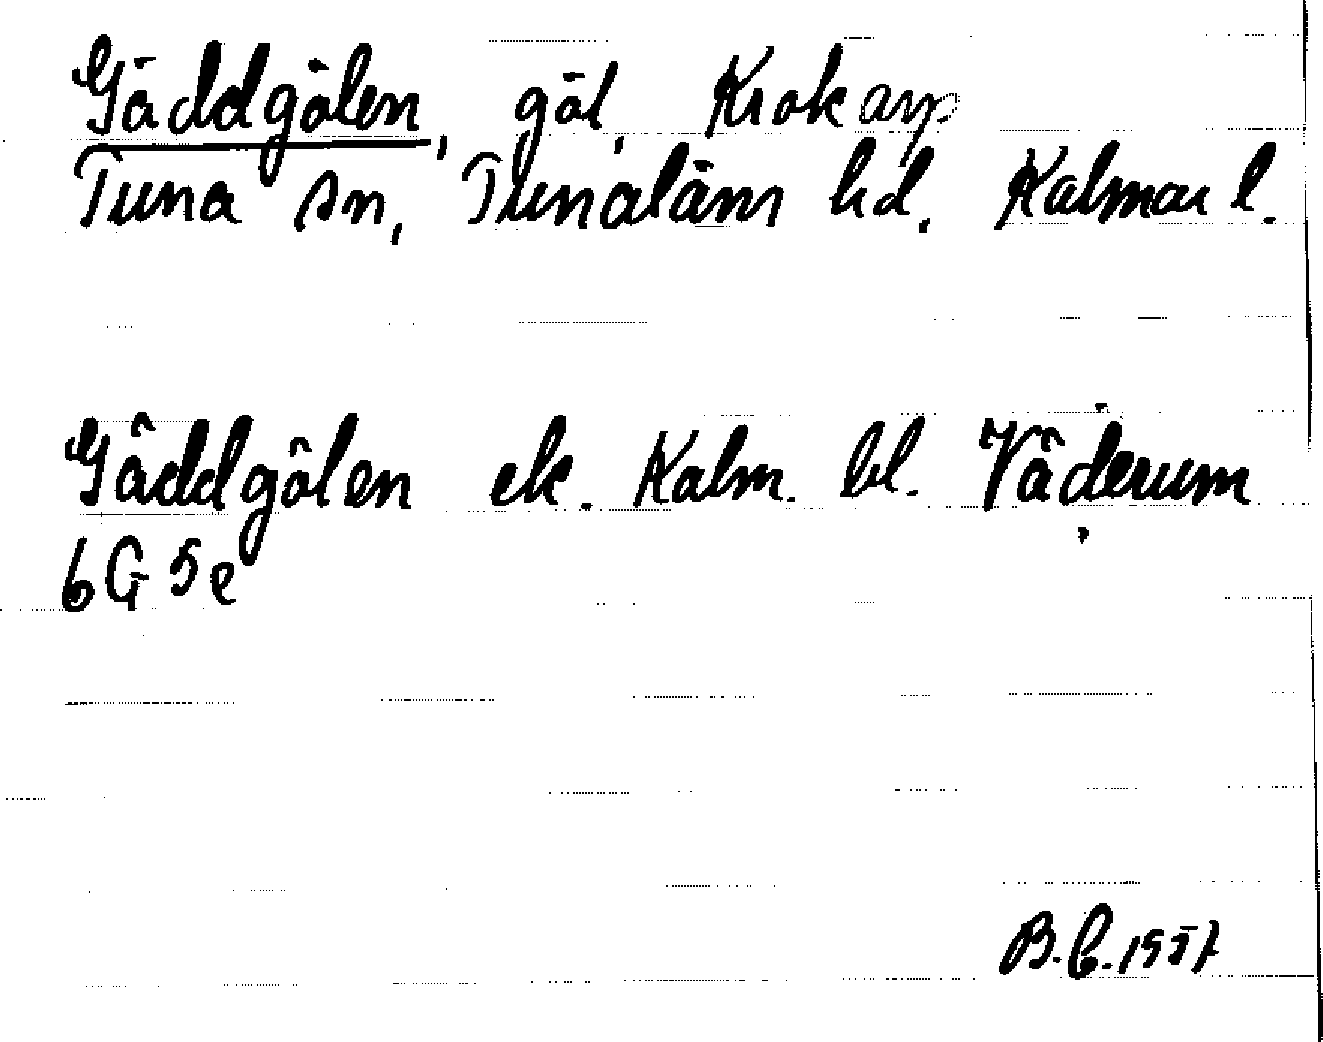 Gäddgölen, göl, Krokarp
Tuna sn, Tunaläns hd. Kalmar l.
Gäddgölen ek. Kalm. bl. Väderum
6G 5e
B.C. 1957